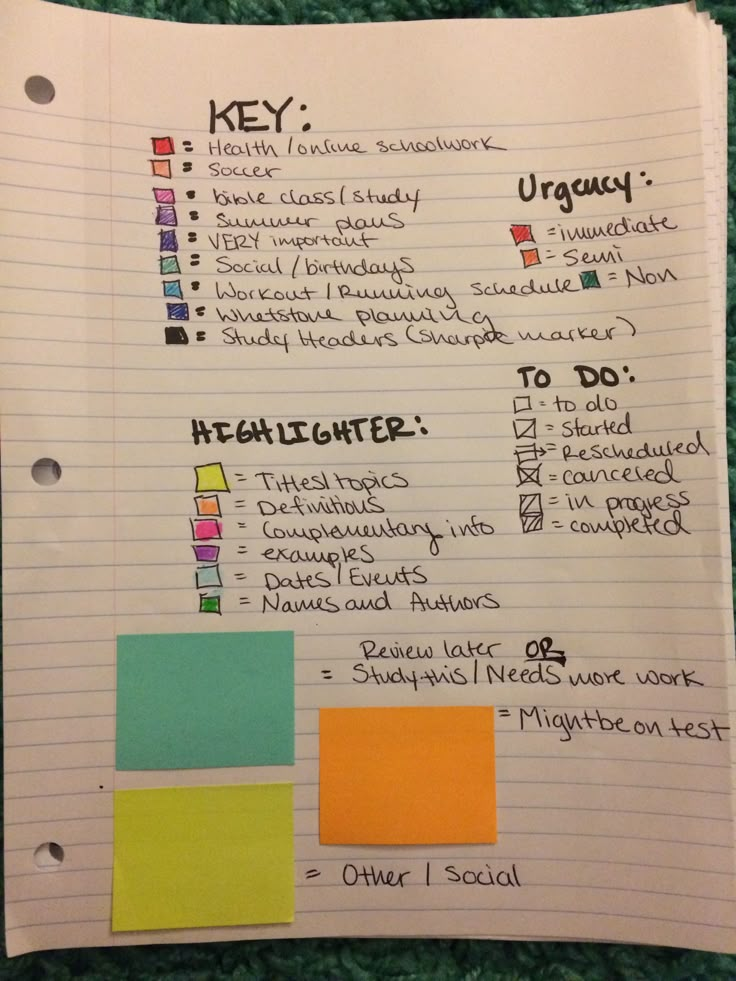 KEY:
= Health / online schoolwork
= Soccer
= bible class / study
= Summer plans
= VERY important
= Social / birthdays
= Workout / Running schedule
= Whetstone planning
= Study Headers (sharpie marker)
Urgency:
= immediate
= Semi
= Non
TO DO:
= to do
= Started
= Rescheduled
= canceled
= in progress
= completed
HIGHLIGHTER:
= Titles / topics
= Definitions
= Complementary info
= examples
= Dates / Events
= Names and Authors
Review later OR
= Study this / Needs more work
= Might be on test
= Other / Social